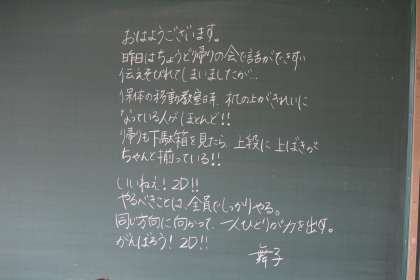 おはようございます。
昨日はちょうど帰りの会で話ができずい
伝えそびれてしまいましたが、
保体の移動教室時、机の上がきれいに
なっている人がほとんど!!
帰りも下駄箱を見たら、上段に上ばきが
ちゃんと揃っている!!
いいねぇ!2D!!
やるべきことは、全員でしっかりやる。
同じ方向に向かって、一人ひとりが力を出す。
がんばろう!2D!!
舞子